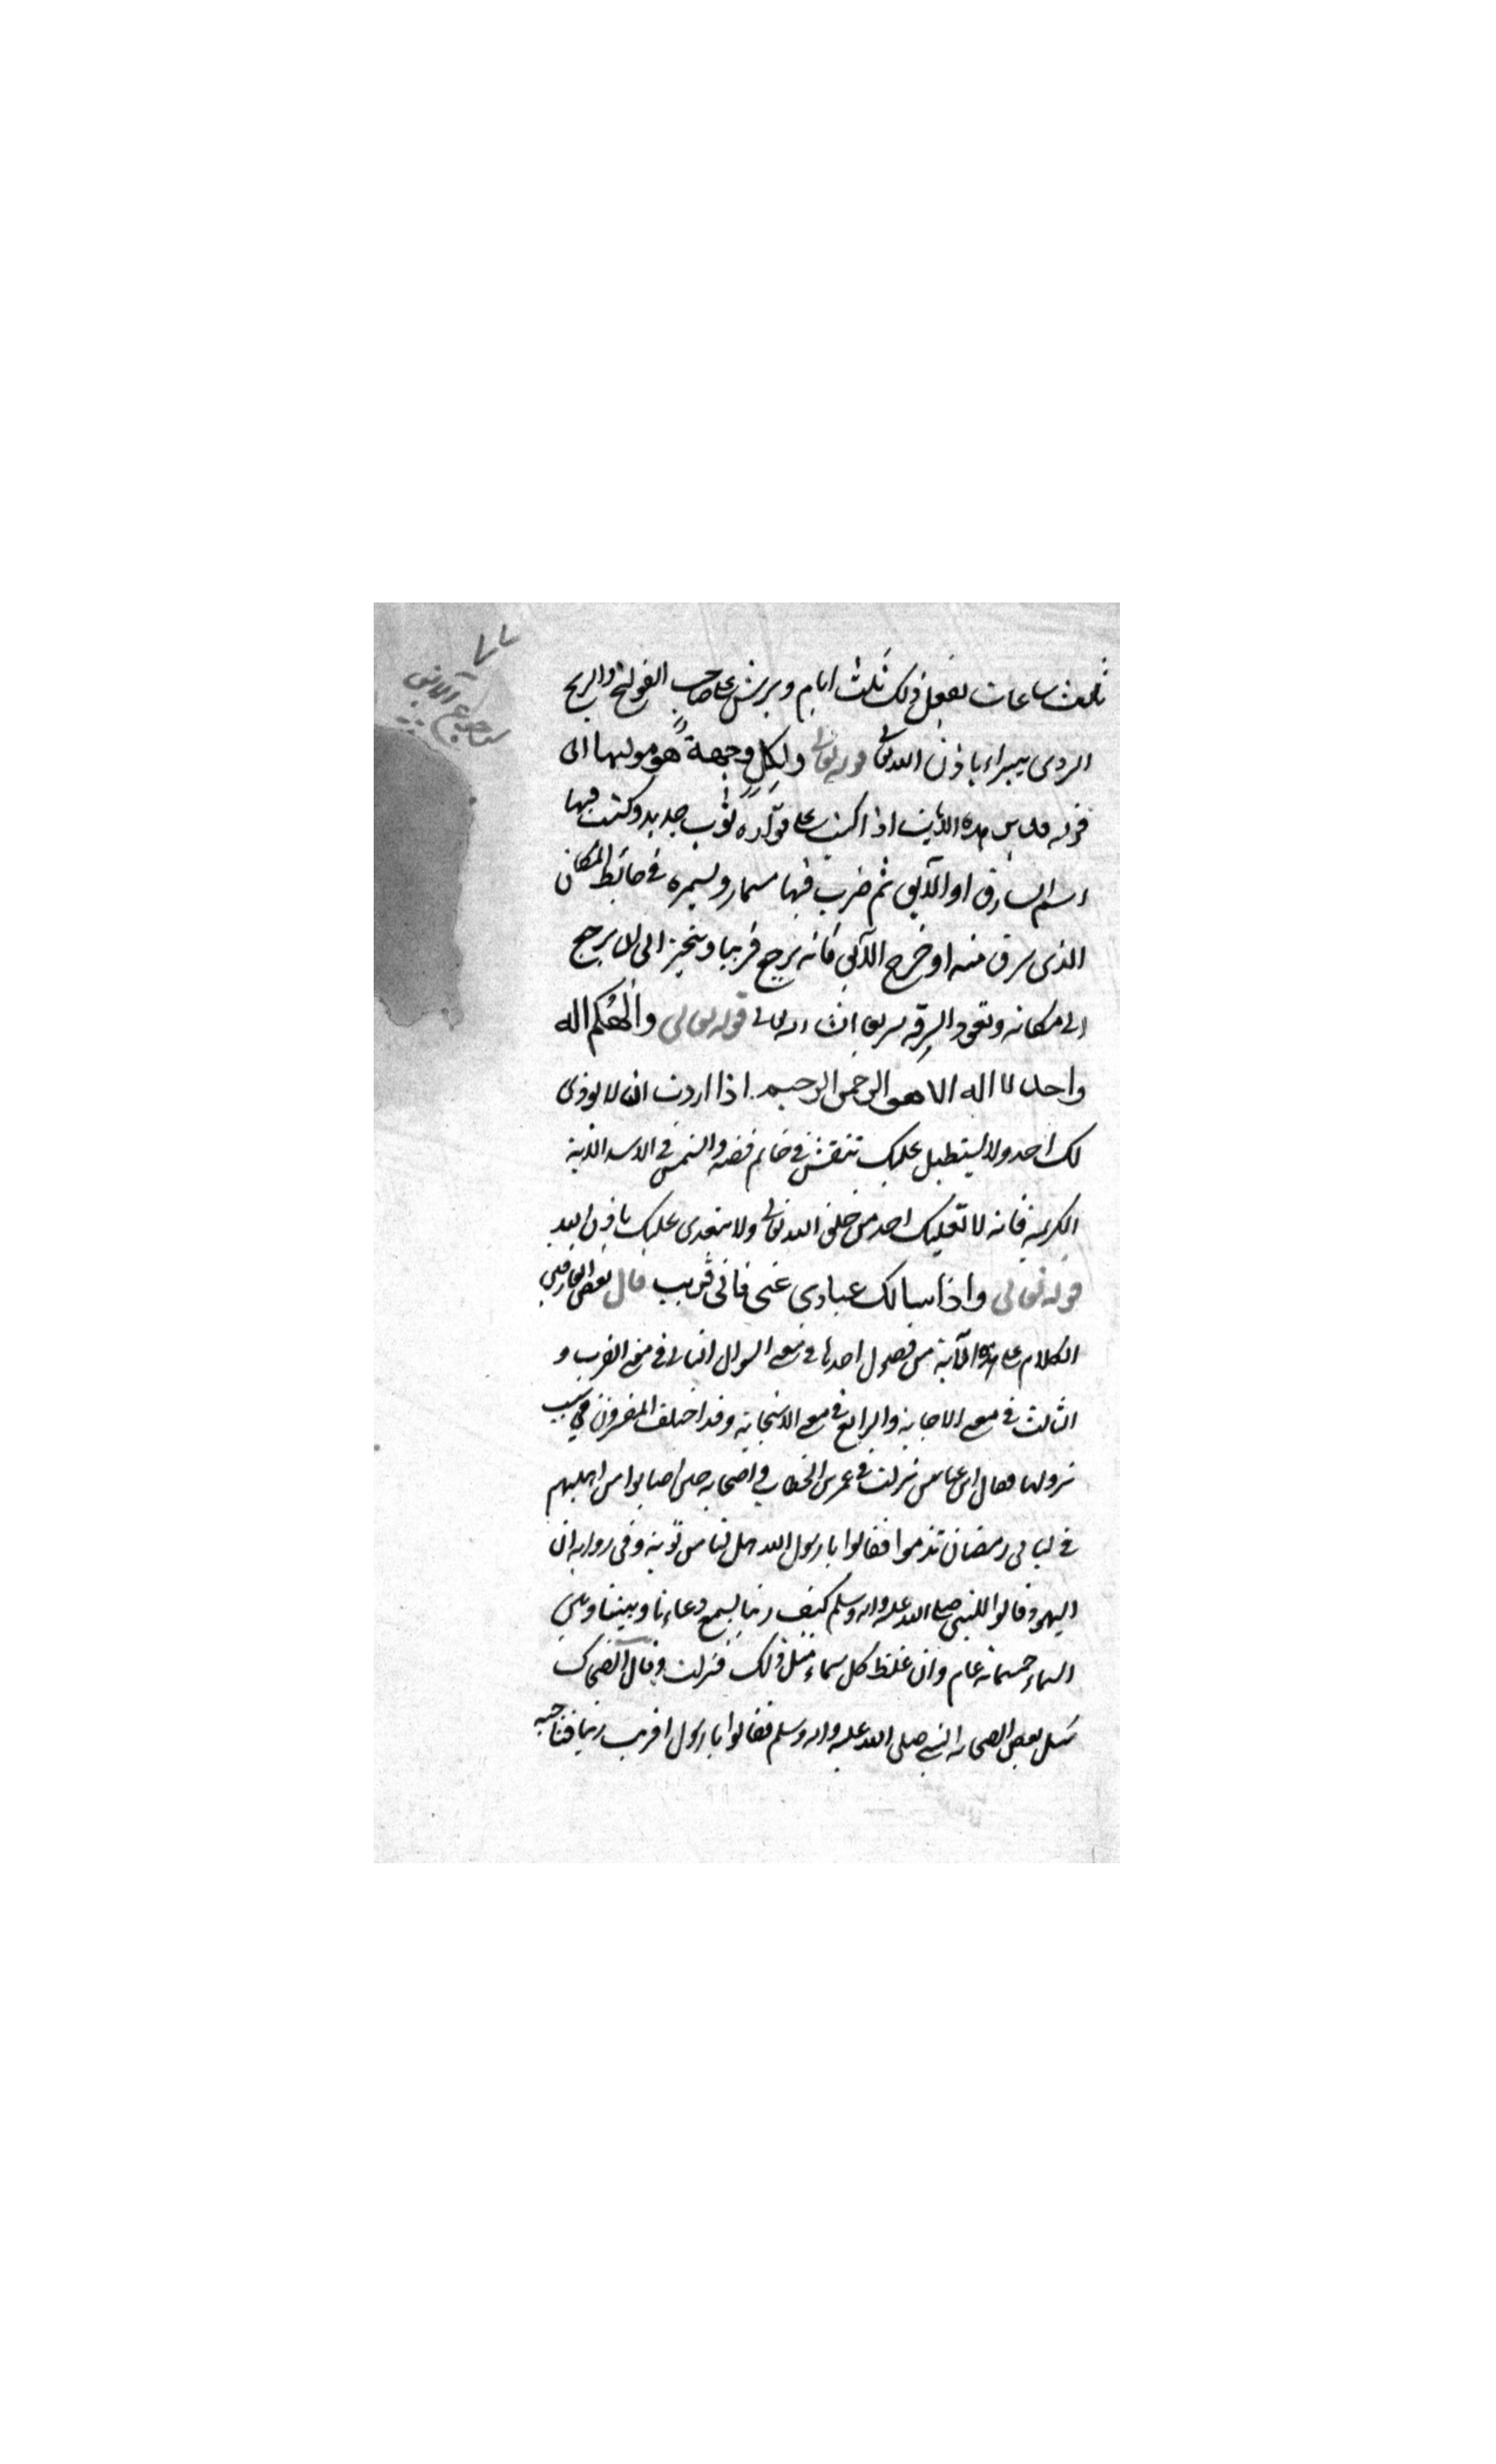 ٧٧
رجوع الآبق
ثلث ساعات يفعل ذلك ثلث ايام ويرش على صاحب القولنج والريح
الردى يبراء باذن الله تعالى قوله تعالى ولكل وجهة هو موليها الى
قوله قدير هذه الاية اذا كتبت على قوارة ثوب جديد وكتبت فيها
اسم السارق او الآبق ثم ضرب فيها مسمار ويسمره في حائط المكان
الذى سرق منه او خرج الآبق فانه يرجع قريبا ويتحير الى ان يرجع
الى مكانه وتعود السرقه سريعا انشاء الله تعالى قوله تعالى والهكم اله
واحد لا اله الا هو الرحمن الرحيم اذا اردت ان لا يوذى
لك احد ولا يستطيل عليك تنقش في خاتم فضه والشمس في الاسد الاية
الكريمه فانه لا احد من خلق الله تعالى ولا يتعدى عليك باذن الله
قوله تعالى واذا سالك عبادى عنى فانى قريب قال بعض العارفين
الكلام على هذه الآية من فصول احدها في معنى السوال الثانى في معنى القرب و
الثالث في معنى الاجابة والرابع في معنى الاستجابة وقد اختلف المفسرون في سبب
نزولها فقال ابن عباس نزلت في عمر بن الخطاب واصحابه حين اصابوا من اهليهم
في ليالى رمضان ندموا فقالوا يا رسول الله هل لنا من توبة وفى رواية ان
اليهود قالوا للنبى صلى الله عليه واله وسلم كيف ربنا يسمع دعاءنا وبيننا وبين
السماء خمسمائة عام وان غلظ كل سماء مثل ذلك فنزلت وقال الضحاك
سئل بعض الصحابة النبى صلى الله عليه واله وسلم فقالوا يا رسول اقريب ربنا فنناجيه